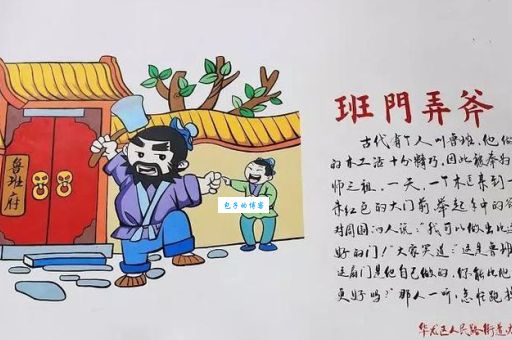 班門弄斧
古代有个人叫鲁班,他做
的木工活十分精巧,因此被奉为
师三祖。一天,一个木匠来到一
朱红色的大门前,举起手中的斧
对周围的人说:"我可以做出比这
好的门!"大家笑道:"这是鲁班
这扇门是他自己做的,你能比他
更好吗?"那人一听,急忙跑掉
华龙区人民路街道办
鲁班府
包子的博客